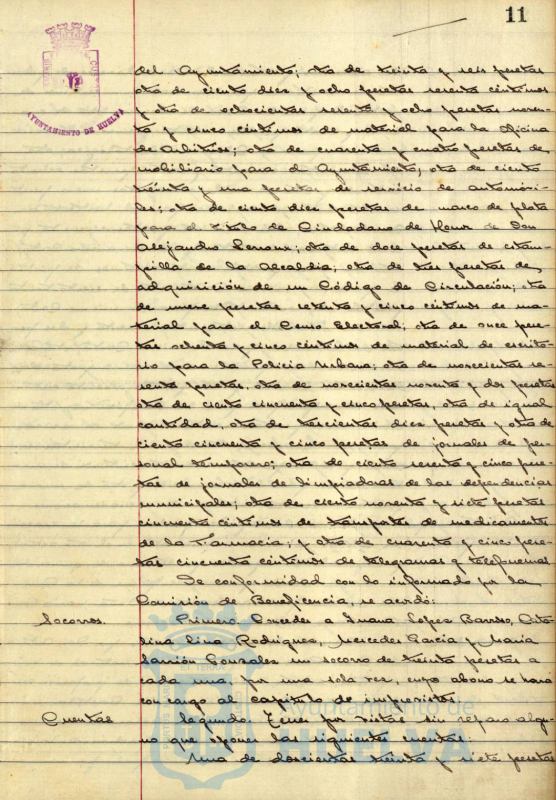 11
AYUNTAMIENTO DE HUELVA
del Ayuntamiento; otra de treinta y seis pesetas
otra de ciento diez y ocho pesetas sesenta céntimos
y otra de ochocientas sesenta y ocho pesetas noven-
ta y cinco céntimos de material para la Oficina
de Arbitrios; otra de cuarenta y cuatro pesetas de
mobiliario para el Ayuntamiento; otra de ciento
treinta y una pesetas de servicio de automóvi-
les; otra de ciento diez pesetas de marco de plata
para el Título de Ciudadano de Honor de Don
Alejandro Lerroux; otra de doce pesetas de estam-
pilla de la Alcaldía; otra de tres pesetas de
adquisición de un Código de Circulación; otra
de nueve pesetas setenta y cinco céntimos de ma-
terial para el Censo Electoral; otra de once pese-
tas ochenta y cinco céntimos de material de escrito-
rio para la Policía Urbana; otra de novecientas se-
senta pesetas, otra de novecientas noventa y dos pesetas
otra de ciento cincuenta y cinco pesetas, otra de igual
cantidad, otra de trescientas diez pesetas y otra de
ciento cincuenta y cinco pesetas de jornales de per-
sonal temporero; otra de ciento sesenta y cinco pese-
tas de jornales de limpiadoras de las dependencias
municipales; otra de ciento noventa y siete pesetas
cincuenta céntimos de transportes de medicamentos
de la Farmacia; y otra de cuarenta y cinco pese-
tas cincuenta céntimos de telegramas y telefonemas.
De conformidad con lo informado por la
Comisión de Beneficencia, se acordó:
Socorros. Primero: Conceder a Juana López Barroso, Cata-
lina Lina Rodríguez, Mercedes García y María
Carrión González un socorro de treinta pesetas a
cada una, por una sola vez, cuyo abono se hará
con cargo al capítulo de imprevistos.
Cuentas Segundo: Tener por vistas sin reparo algu-
no que oponer las siguientes cuentas:
Una de doscientas treinta y siete pesetas
Ayuntamiento de
HUELVA